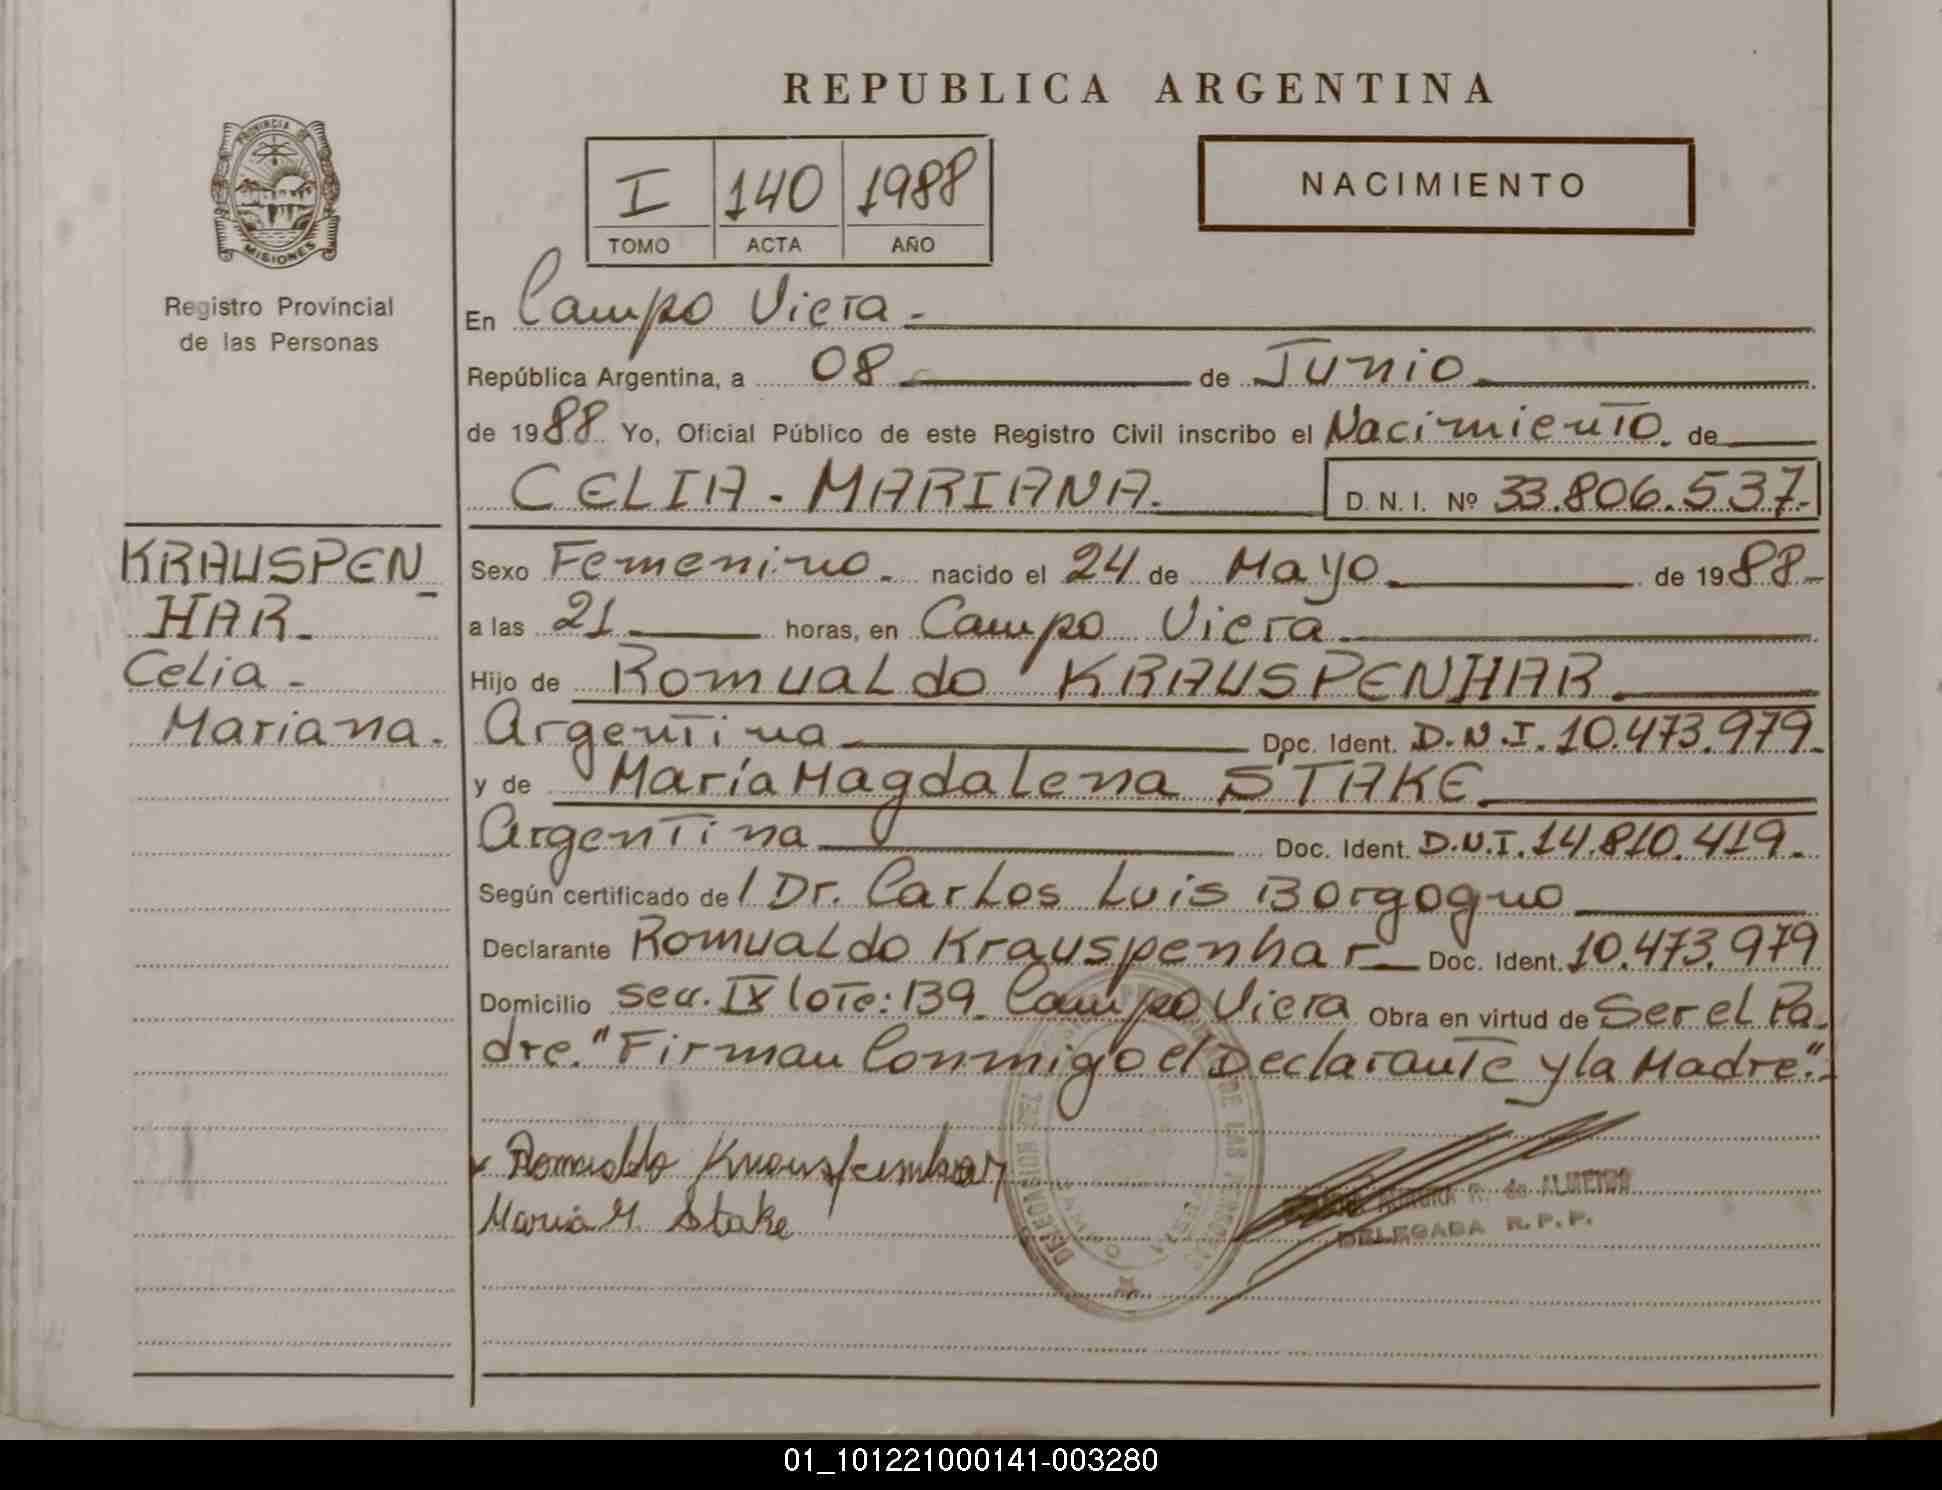 REPUBLICA ARGENTINA
PROVINCIA DE
MISIONES
Registro Provincial
de las Personas
I 140 1988
TOMO ACTA AÑO
NACIMIENTO
En Campo Viera.-
República Argentina, a 08 de Junio
de 1988 Yo, Oficial Público de este Registro Civil inscribo el Nacimiento. de
CELIA - MARIANA. D. N. I. Nº 33.806.537.-
KRAUSPEN_
HAR_
Celia -
Mariana.
Sexo Femenino. nacido el 24 de Mayo de 1988-
a las 21 horas, en Campo Viera.
Hijo de Romualdo KRAUSPENHAR
Argentina Doc. Ident. D.N.I. 10.473.979.
y de María Magdalena STAKE
Argentina Doc. Ident. D.N.I. 14.810.419.
Según certificado de / Dr. Carlos Luis Borgogno
Declarante Romualdo Krauspenhar Doc. Ident. 10.473.979
Domicilio secc. IX lote: 139. Campo Viera Obra en virtud de Ser el Pa-
dre. "Firman Conmigo el Declarante y la Madre".-
Romualdo Krauspenhar
Maria M. Stake
R. de ALMEIDA
DELEGADA R.P.P.
01_101221000141-003280